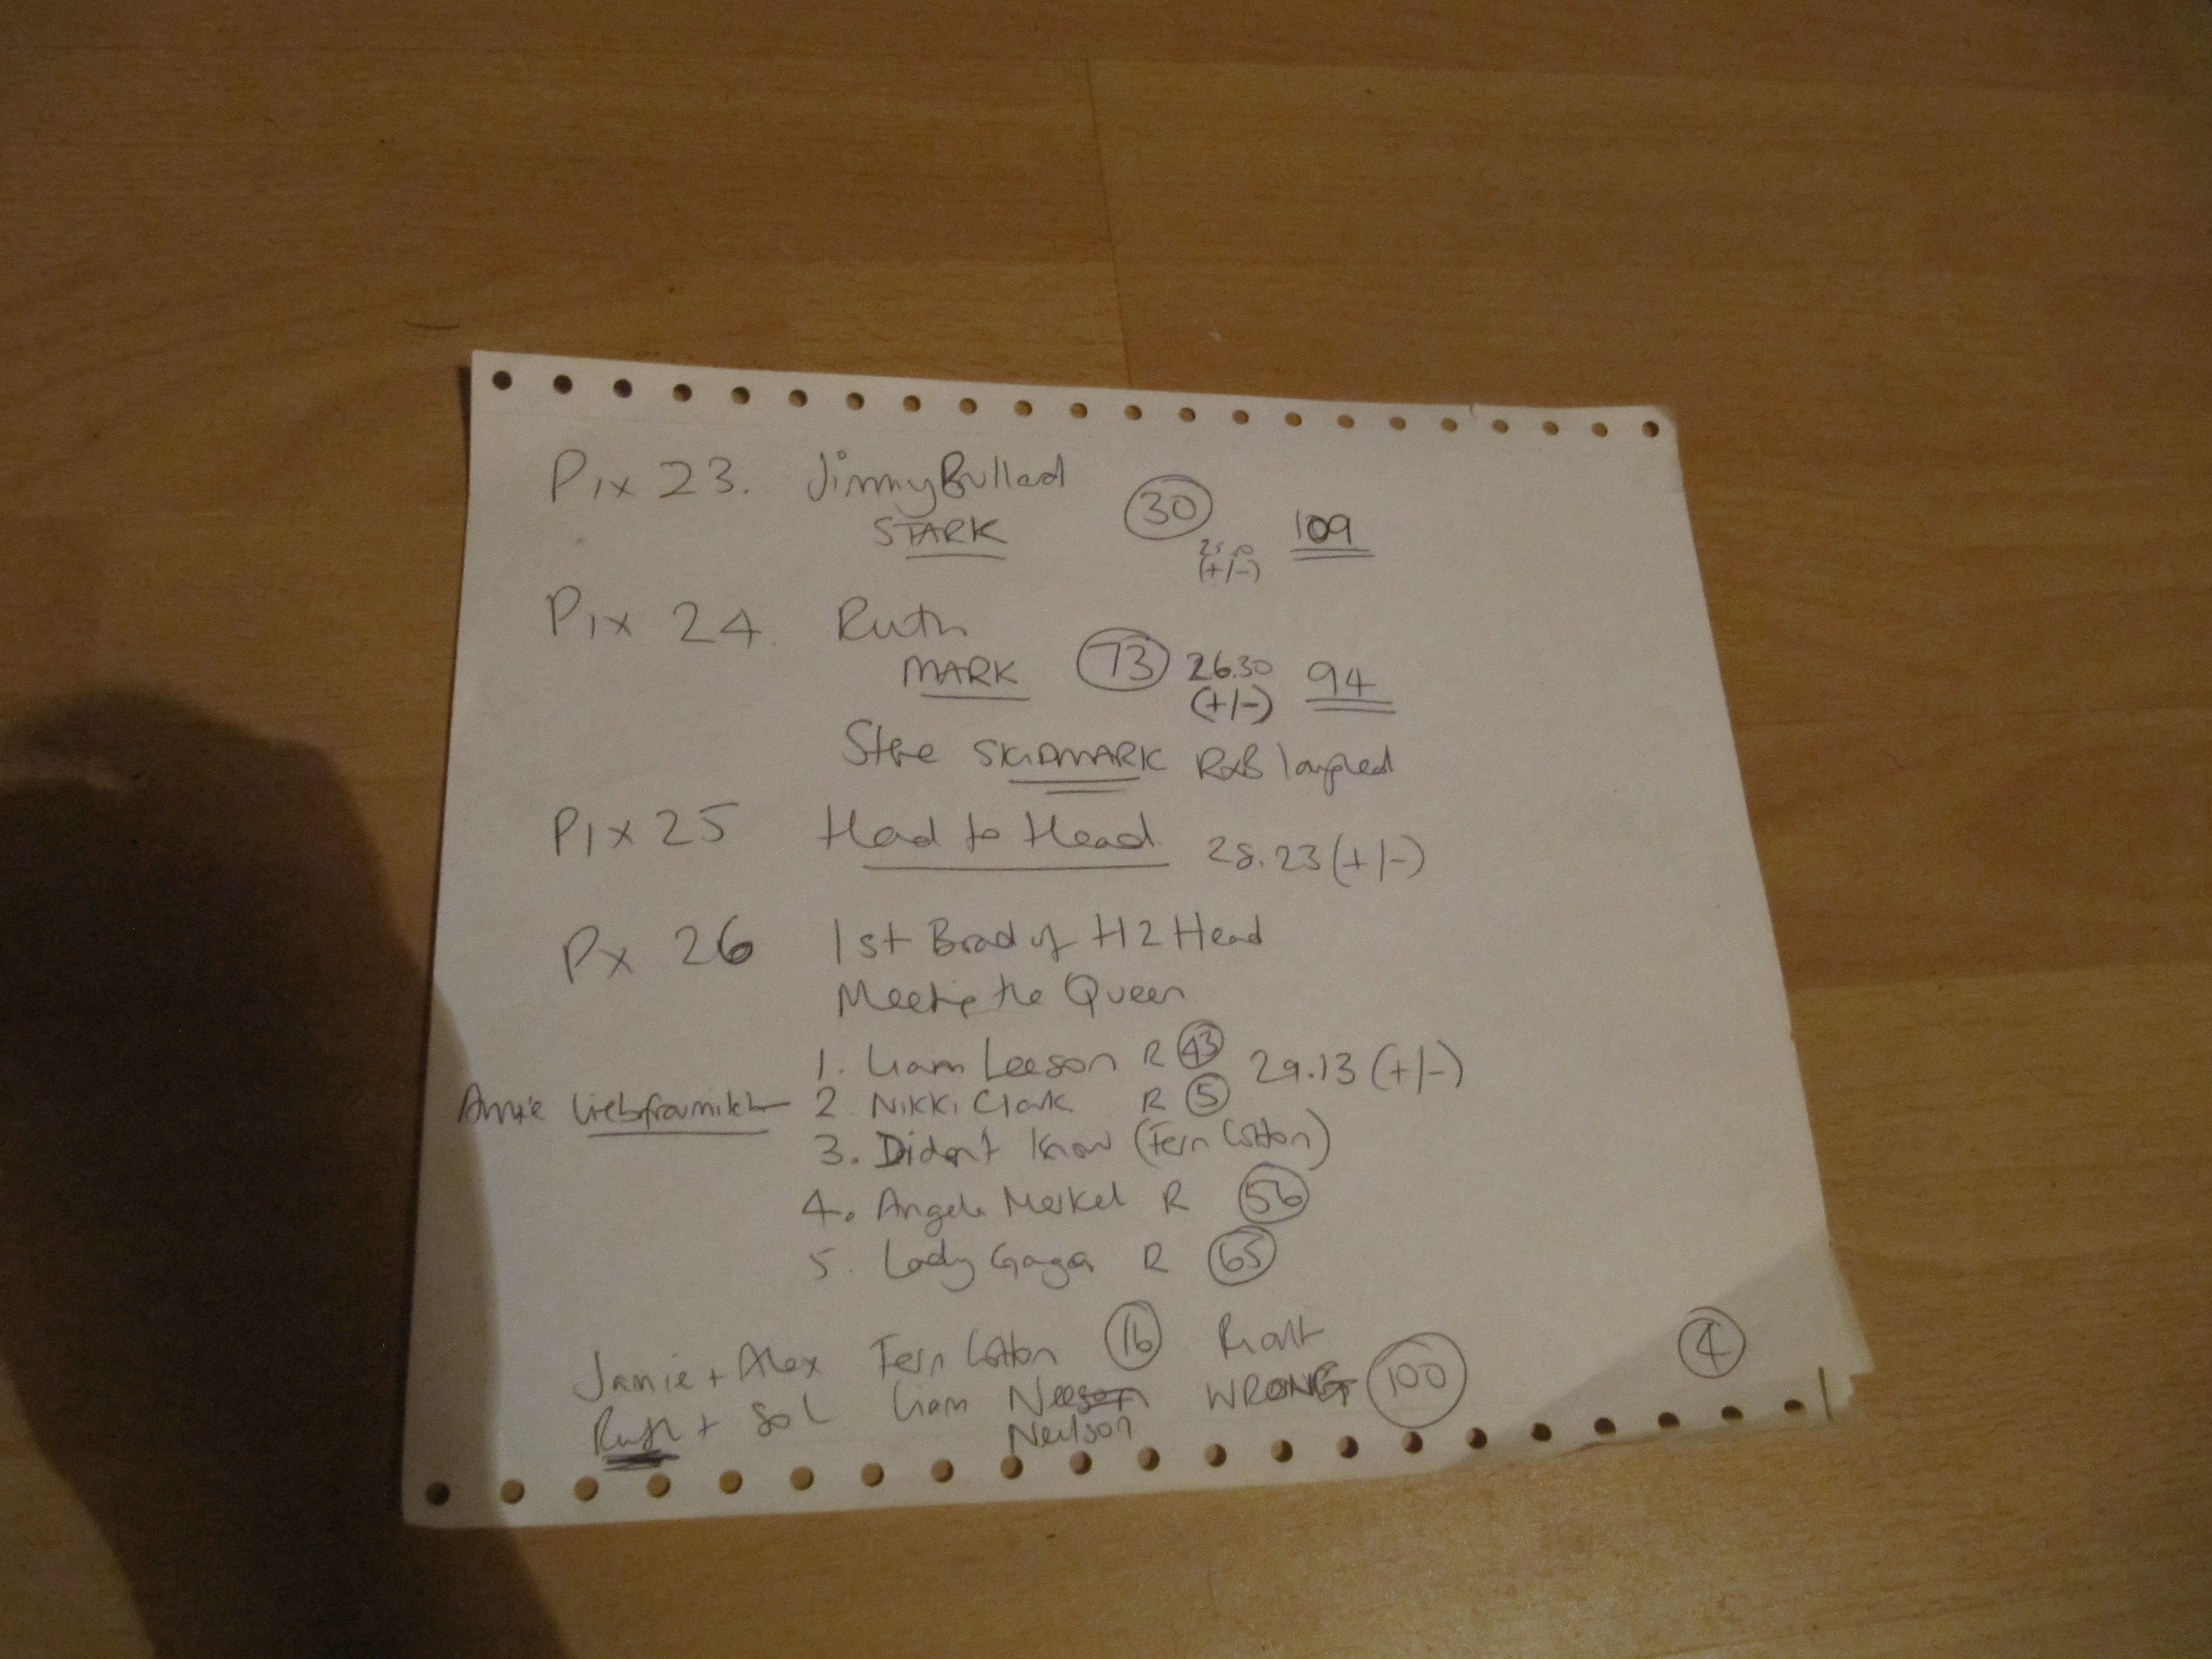 Pix 23. Jimmy Bullard
STARK 30 109
(+/-)
Pix 24. Ruth
MARK 73 26.30 94
(+/-)
Steve SKIDMARK RxB laughed
Pix 25 Head to Head 28.23 (+/-)
Px 26 1st Board of H2 Head
Meeting the Queen
1. Liam Leeson R 43 29.13 (+/-)
Annie Liebfraumilch 2 Nikki Clark R 5
3. Didn't Know (Fern Cotton)
4. Angela Merkel R 56
5. Lady Gaga R 65
Jamie + Alex Fern Cotton 16 Right
Ruth + Sol Liam Neeson WRONG 100
Neilson
4